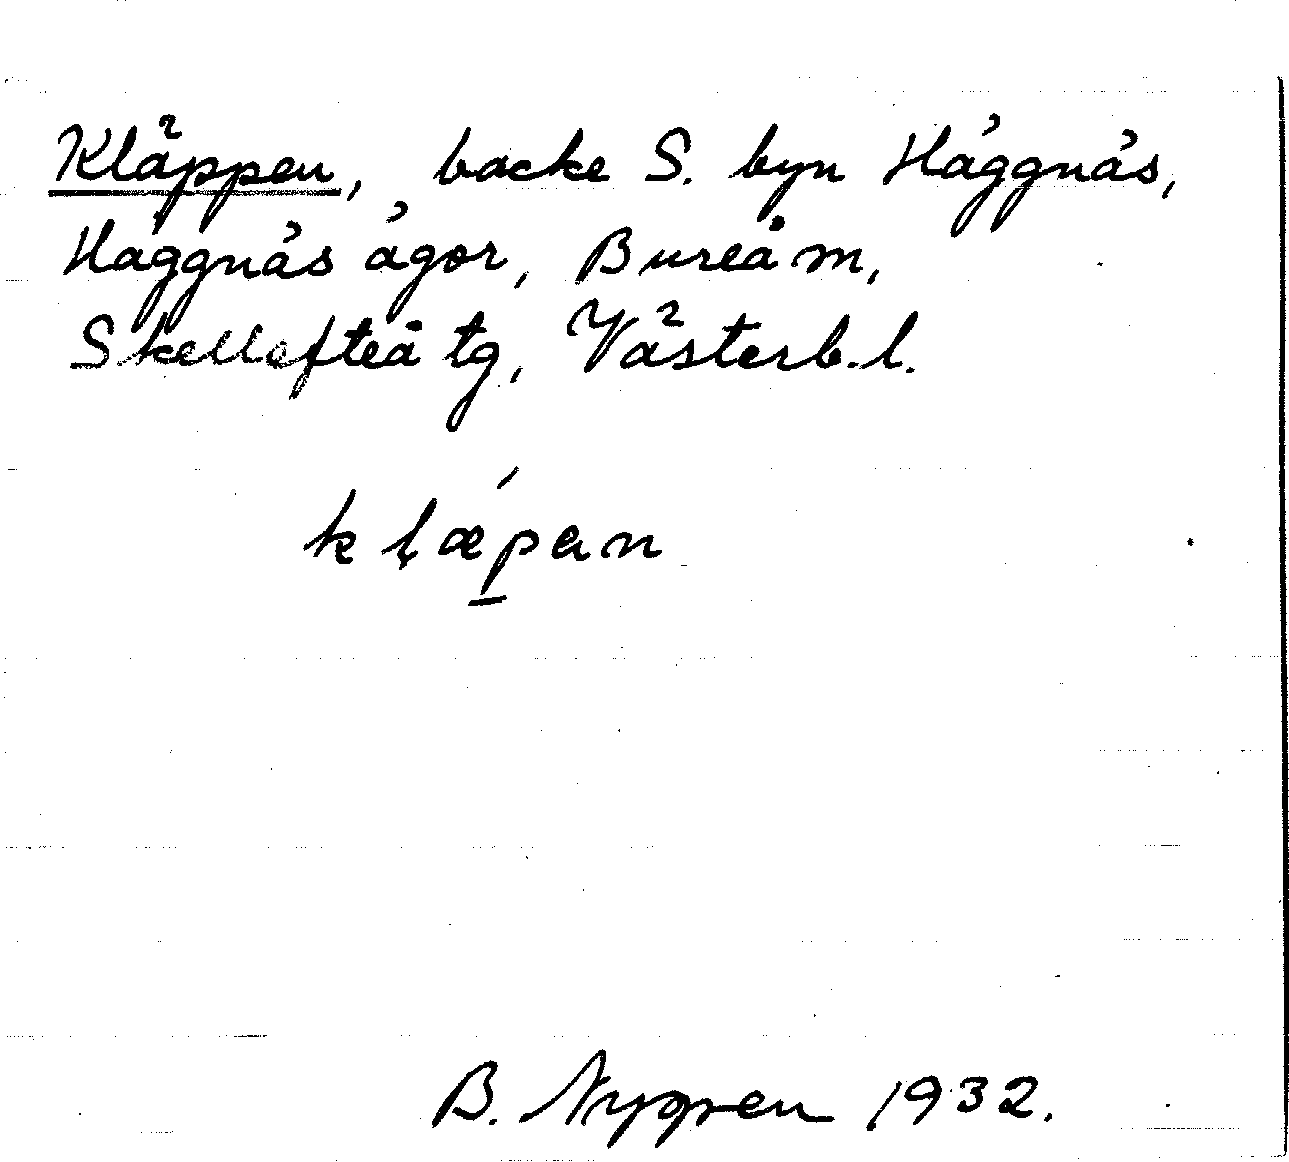 Kläppen, backe S. byn Häggnäs,
Häggnäs ägor, Bureå m,
Skellefteå tg, Västerb. l.
klǽp̲an
B. Nygren 1932.